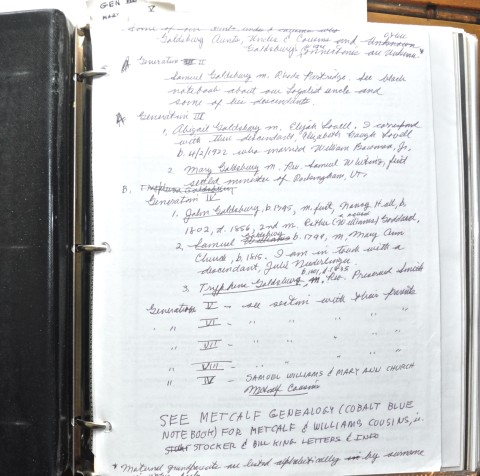 GEN
V
Some of
Goldsbury Aunts, Uncles & Cousins and
Goldsbury connections are
A Generation II
Samuel Goldsbury m. Rhoda Partridge. See black
notebook about our Loyalist uncle and
some of his descendants.
A Generation III
1. Abigail Goldsbury m. Elijah Lovell. I correspond
with their descendant, Elizabeth Lovell
b. 4/2/1922 who married William Bowman, Jr.
2. Mary Goldsbury m. Rev. Samuel Whiting, first
settled minister of Rockingham, Vt.
B. Tryphena Goldsbury
Generation IV
1. John Goldsbury, b. 1795, m. first, Nancy Hall, b.
1802, d. 1856, 2nd m. Esther (Williams) Goddard,
2. Samuel Goldsbury Williams b. 1798, m. Mary Ann
Church, b. 1815. I am in touch with a
descendant, Julie
3. Tryphena Goldsbury, m. Rev. Preserved Smith
Generation V - see section with their parents
" VI - " " " "
" VII - " " " "
" VIII - " " " "
" IV - SAMUEL WILLIAMS & MARY ANN CHURCH
Metcalf Cousins
SEE METCALF GENEALOGY (COBALT BLUE
NOTEBOOK) FOR METCALF & WILLIAMS COUSINS, i.e.
STOCKER & BILL KING LETTERS & INFO
* Maternal grandparents are listed alphabetically by surname